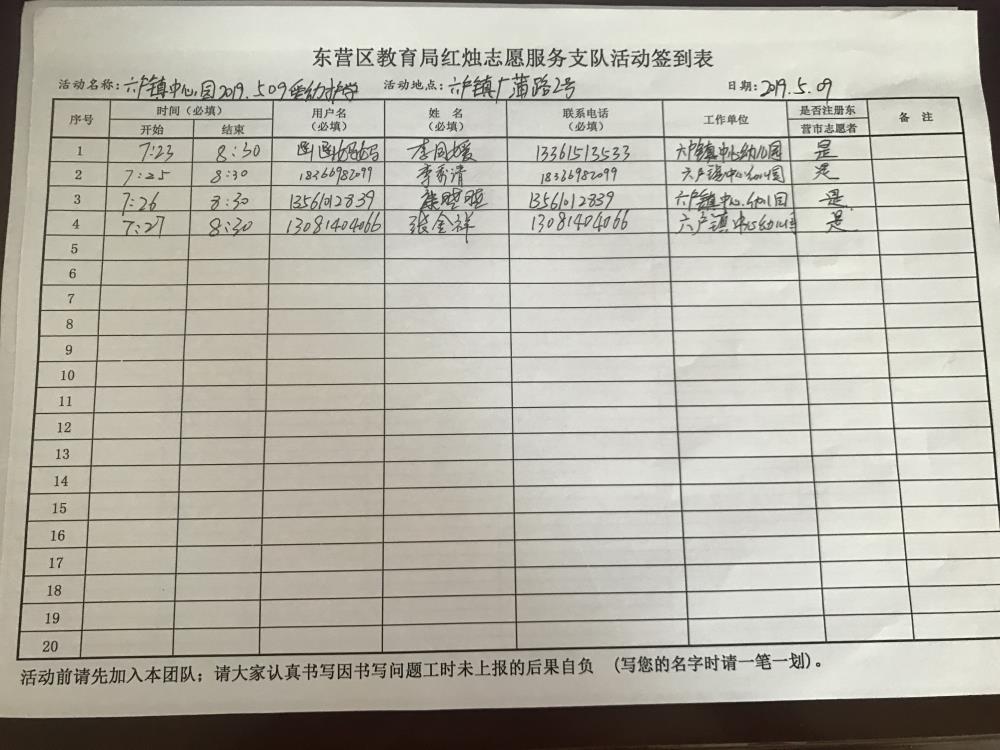 东营区教育局红烛志愿服务支队活动签到表
活动名称：六户镇中心园2019.5.09爱幼护学 活动地点：六户镇广蒲路2号 日期：2019.5.09
序号 时间（必填） 用户名（必填） 姓 名（必填） 联系电话（必填） 工作单位 是否注册东营市志愿者 备 注
开始 结束
1 7:23 8:30 李同媛 13361513533 六户镇中心幼儿园 是
2 7:25 8:30 18366982099 李秀清 18366982099 六户镇中心幼儿园 是
3 7:26 8:30 13561012839 13561012839 六户镇中心幼儿园 是
4 7:27 8:30 13081404066 张金祥 13081404066 六户镇中心幼儿园 是
5
6
7
8
9
10
11
12
13
14
15
16
17
18
19
20
活动前请先加入本团队；请大家认真书写因书写问题工时未上报的后果自负 （写您的名字时请一笔一划）。